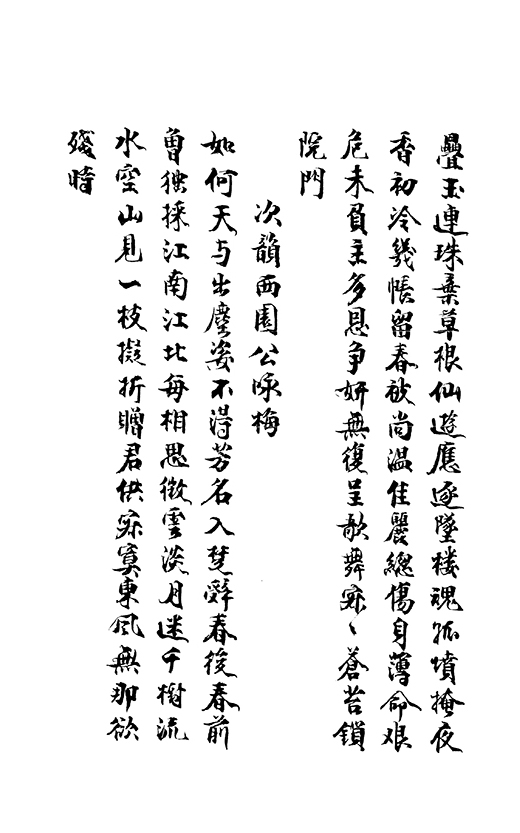 疊玉連珠棄草根仙遊應逐墜楼魂孤墳掩夜
香初冷幾帳留春被尚温佳麗總傷身薄命艰
危未負主多恩争妍無復呈歌舞寂ヽ蒼苔鎖
院門
次韻西園公咏梅
如何天与出塵姿不得芳名入楚辭春後春前
曾独採江南江北每相思微雲淡月迷千樹流
水空山見一枝擬折贈君供寂寞東风無那欲
殘時